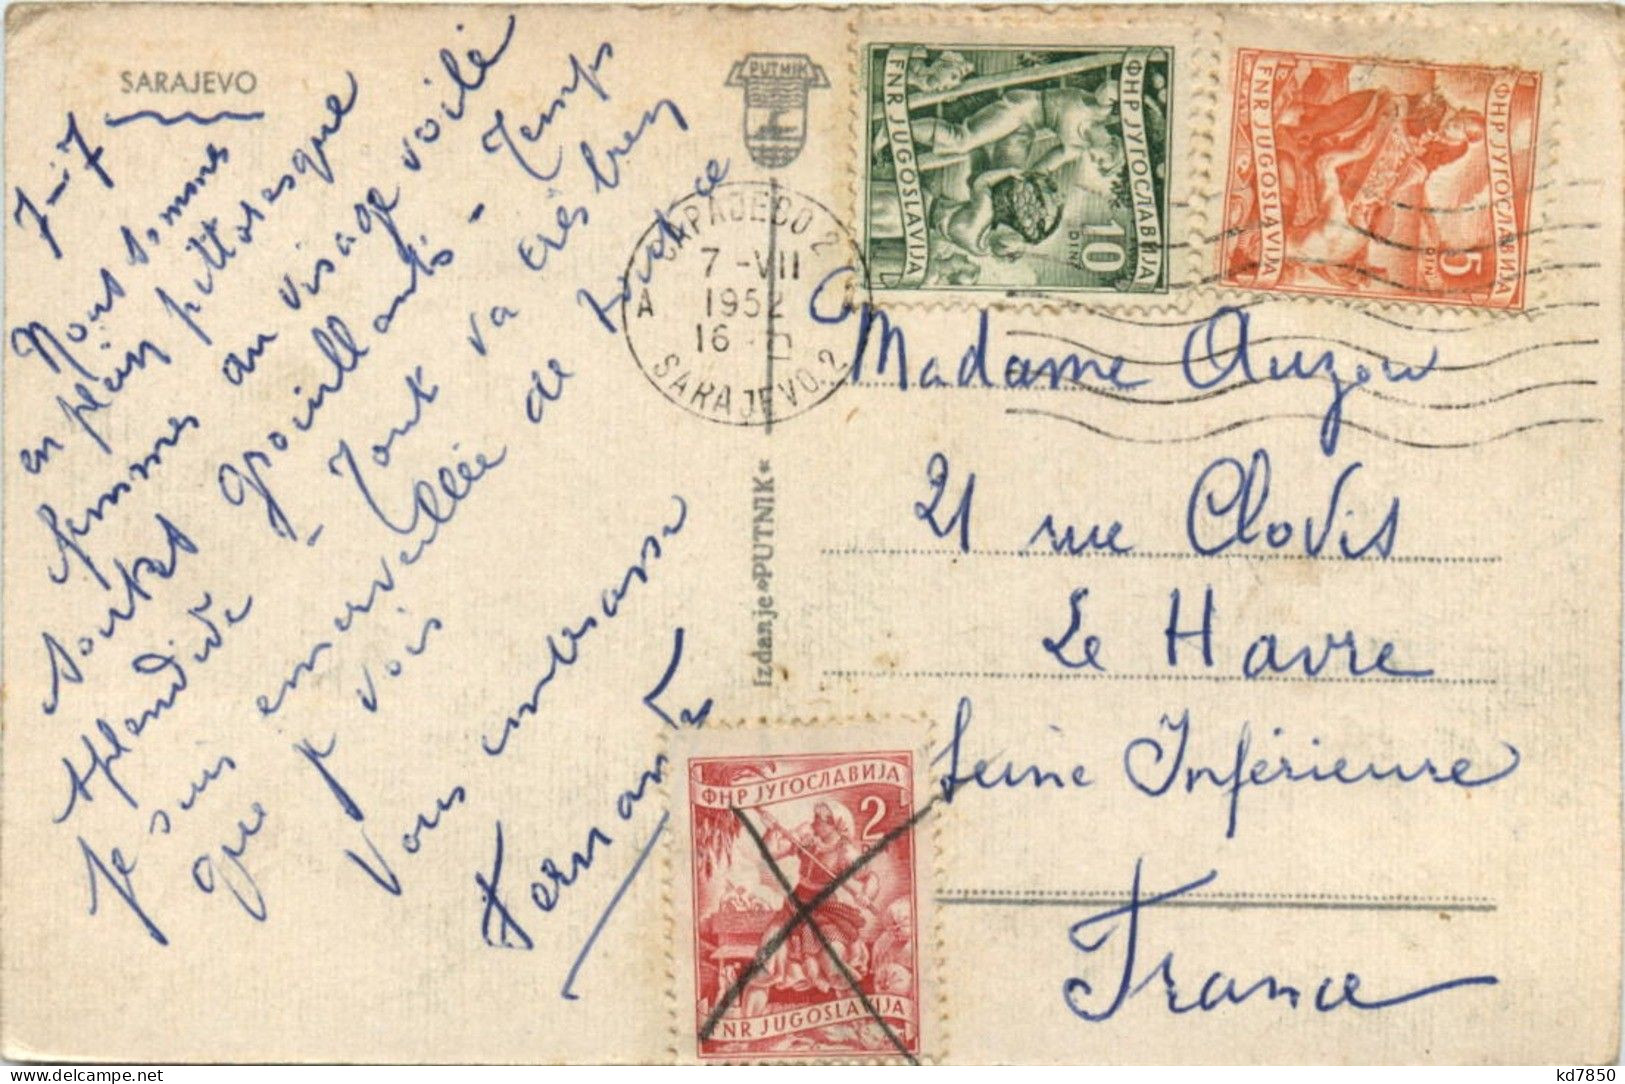 SARAJEVO
7-7
Nous sommes
en plein pittoresque
femmes au visage voilé
souks grouillants - Temps
splendide - Tout va très bien
Je suis émerveillée de tout ce
que je vois
Vous embrasse
Fernande
PUTNIK
Izdanje »PUTNIK«
САРАЈЕВО 2
7-VII
1952
16
A
SARAJEVO. 2
ФНР ЈУГОСЛАВИЈА
10
DIN
FNR JUGOSLAVIJA
ФНР ЈУГОСЛАВИЈА
5
DIN
FNR JUGOSLAVIJA
Madame Auzou
21 rue Clovis
Le Havre
Seine Inférieure
France
ФНР ЈУГОСЛАВИЈА
2
FNR JUGOSLAVIJA
www.delcampe.net
kd7850